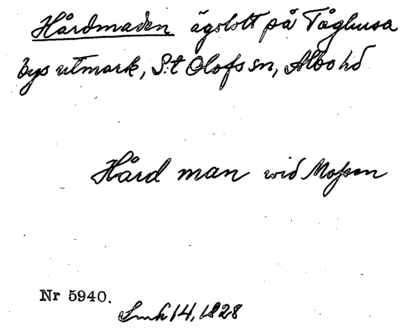 Hårdmaden ägolott på Tåghusa
bys utmark, S:t Olofs sn, Albo hd
Hård man wid Mossen
Nr 5940.
Smh 14, 1828